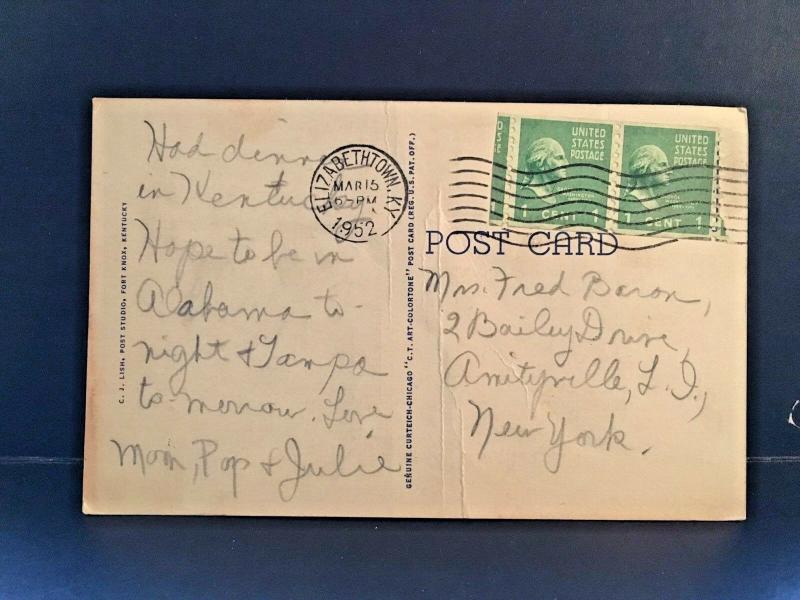 C. J. LISH, POST STUDIO, FORT KNOX, KENTUCKY
Had dinner
in Kentucky
Hope to be in
Alabama to-
night & Tampa
to-morrow. Love
Mom, Pop & Julie
GENUINE CURTEICH-CHICAGO "C.T. ART-COLORTONE" POST CARD (REG. U.S. PAT. OFF.)
ELIZABETHTOWN, KY.
MAR 15
PM
1952
UNITED
STATES
POSTAGE
1 CENT 1
UNITED
STATES
POSTAGE
1 CENT 1
POST CARD
Mrs. Fred Baron,
2 Bailey Drive,
Amityville, L. I.,
New York.